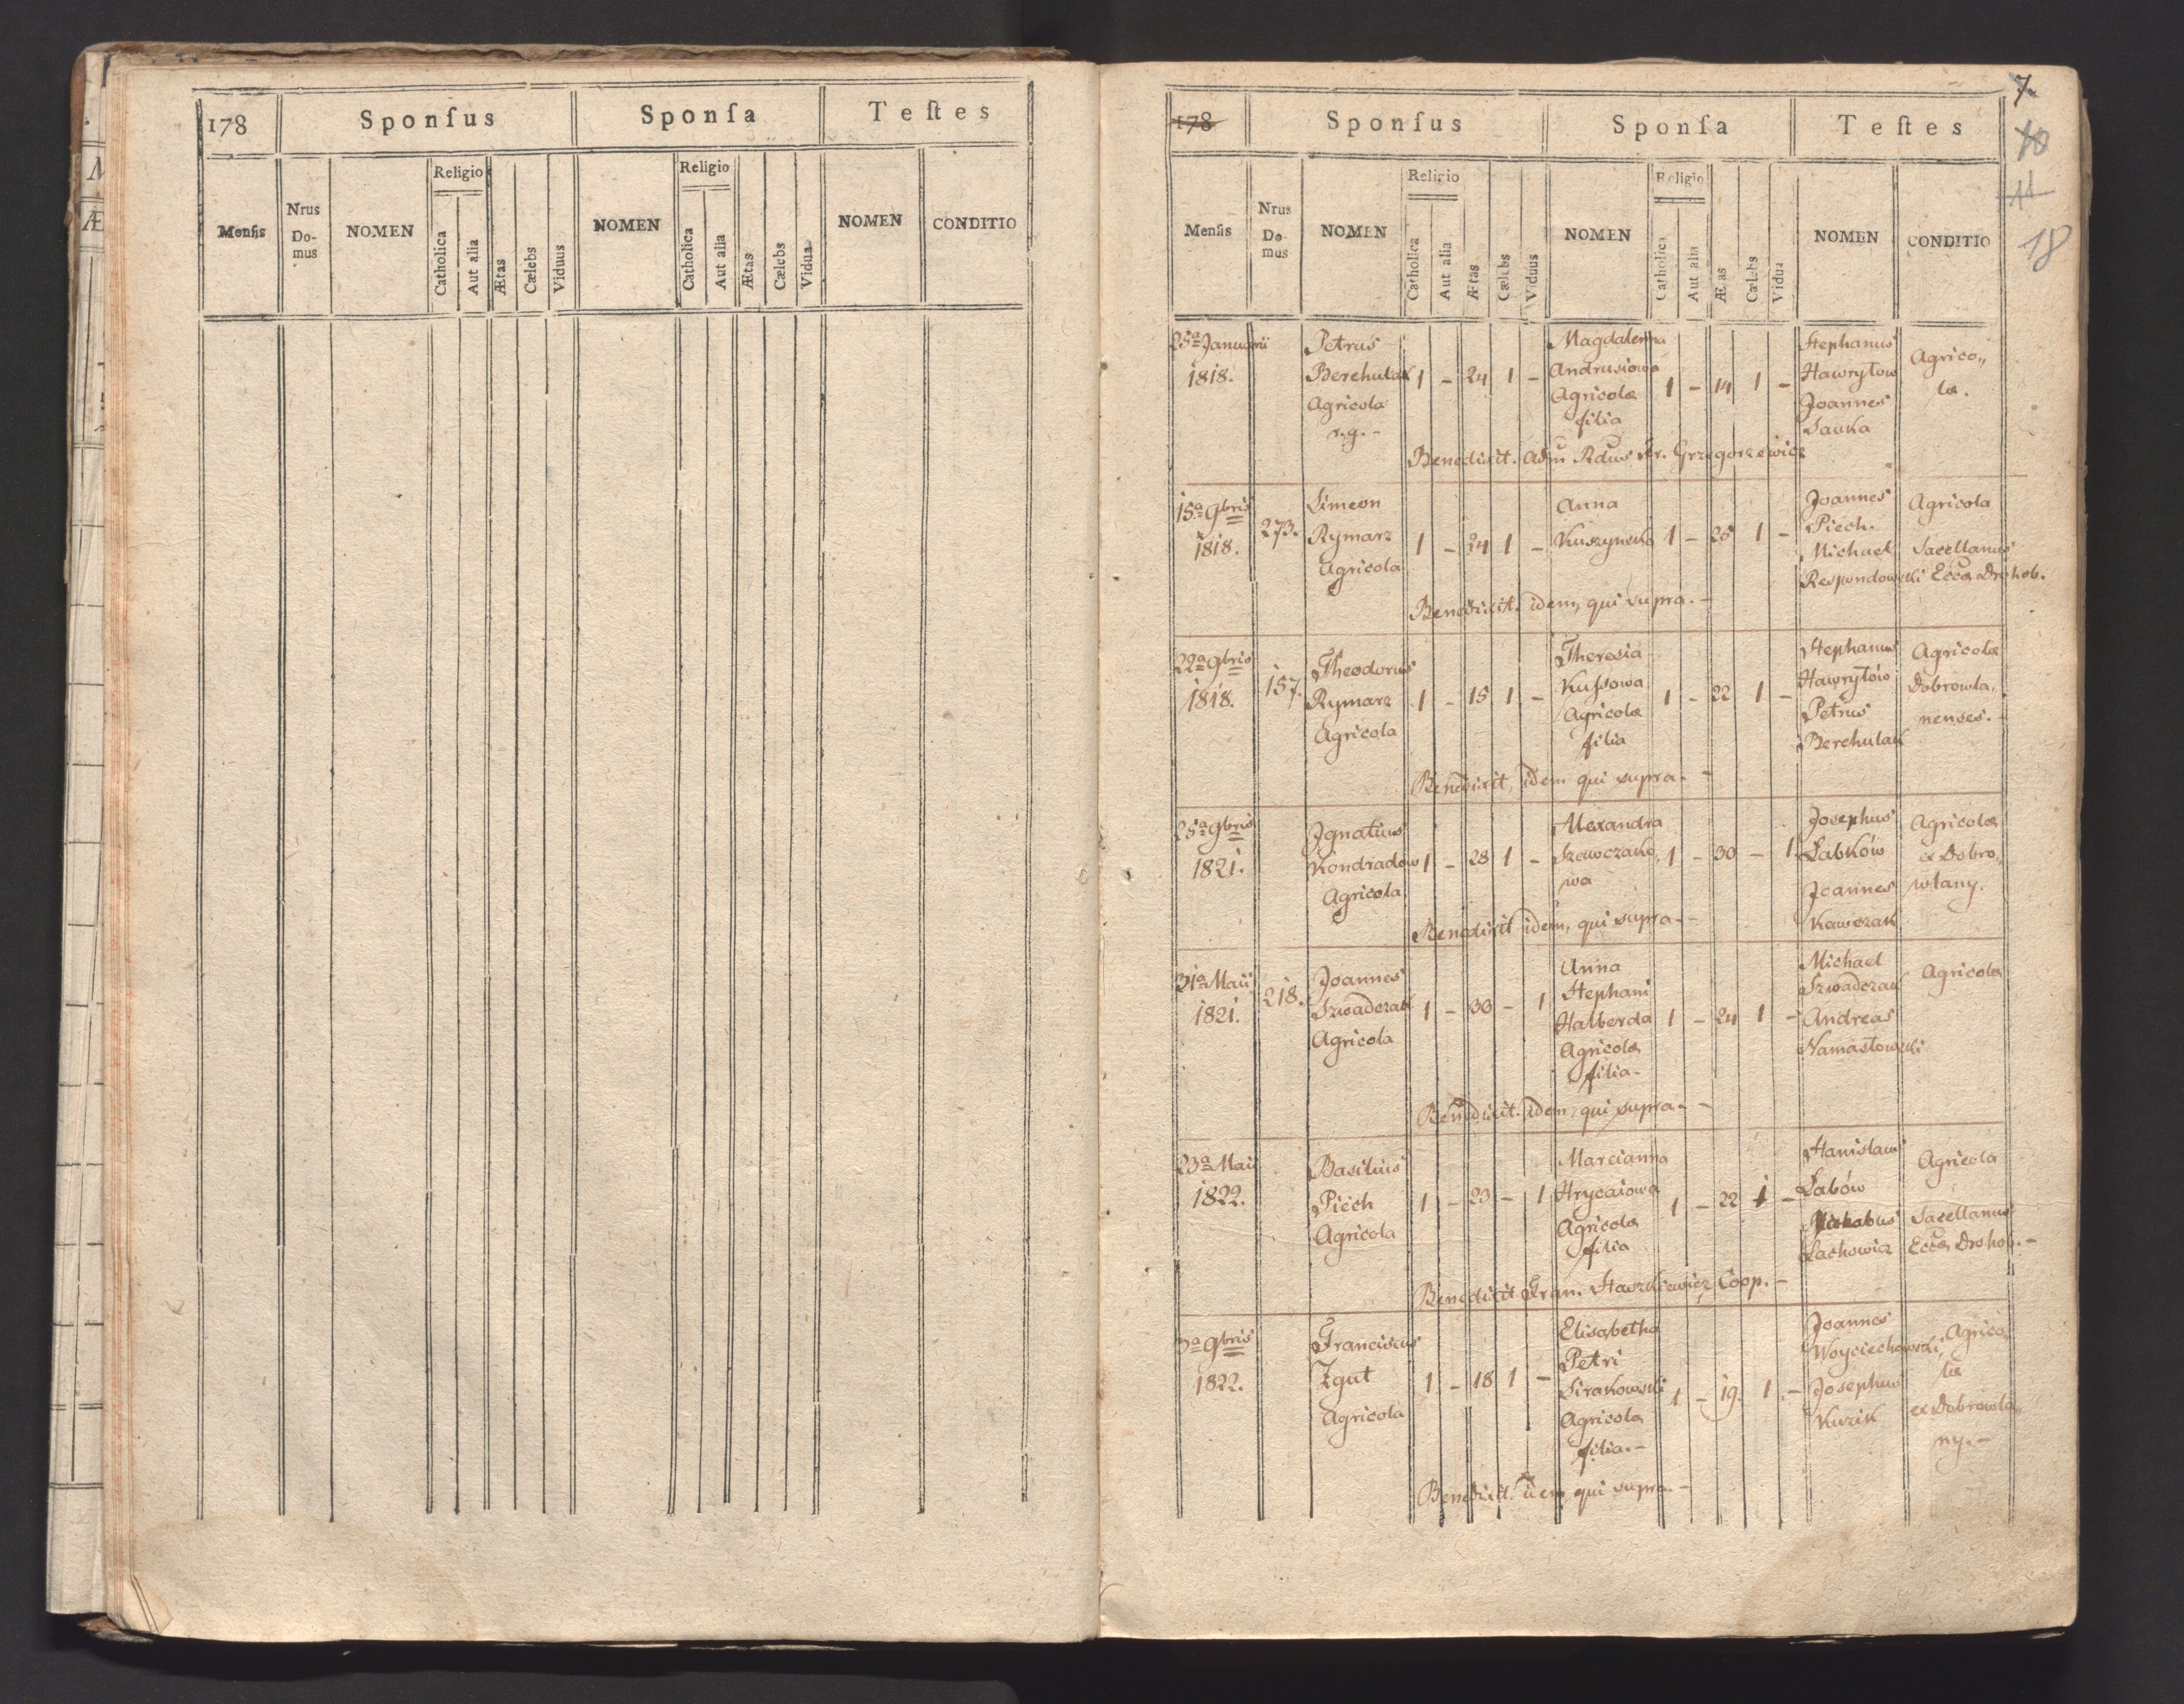 178 Sponſus Sponſa Teſtes
Religio Religio
Menſis Nrus Do- mus NOMEN Catholica Aut alia Ætas Cælebs Viduus NOMEN Catholica Aut alia Ætas Cælebs Vidua NOMEN CONDITIO
7.
10
11
18
178 Sponſus Sponſa Teſtes
Religio Religio
Menſis Nrus Do- mus NOMEN Catholica Aut alia Ætas Cælebs Viduus NOMEN Catholica Aut alia Ætas Cælebs Vidua NOMEN CONDITIO
25a Januarii Petrus Magdalenna Stephanus
1818. Berehulak 1 - 24 1 - Andrusiowa 1 - 14 1 - Hawryłow Agrico„
Agricola Agricolæ Joannes læ.
r.g.- filia Sauka
Benedixit. Adm Rdus Fr. Grzegorzewicz
15a 9bris Simeon Anna Joannes Agricola
273. Rymarz 1 - 24 1 - Kuszynska 1 - 25 1 - Piech.
1818. Agricola Michael Sacellanus
Respondowski Eccæ Drohob.
Benedixit. idem, qui supra. -
22a 9bris Theodorus Theresia Stephanus Agricolæ
157. Rymarz 1 - 15 1 - Kuſsowa 1 - 22 1 - Hawryłów Dobrowla„
1818. Agricola Agricolæ Petrus nenses. -
filia Berehulak
Benedixit, idem qui supra. -
25a 9bris Ignatius Alexandra Josephus Agricolæ
1821. Kondradow 1 - 28 1 - Szewczako„ 1 - 30 - 1 Łabków ex Dobro„
Agricola wa Joannes wlany.
Kawczak
Benedixit idem, qui supra. -
31a Maii Joannes Anna Michael Agricolæ
218. Szwadczak 1 - 30 - 1 Stephani Szwadczak
1821. Agricola Halberda 1 - 24 1 - Andreas
Agricolæ Namastowski
filia -
Benedixit. idem, qui supra. -
23a Maii Basilius Marcianna Stanislaus Agricola
1822. Piech 1 - 23 - 1 Hrycaiowa 1 - 22 1 - Łabów
Agricola Agricolæ Jakobus Sacellanus
filia Lachowicz Eccæ Drohob. -
Benedixit. Fran. Stawkiewicz Coop. -
3a 9bris Franciscus Elisabetha Joannes
1822. Zgut 1 - 18 1 - Petri Woyciechowski, Agrico„
Agricola Sirakowski 1 - 19. 1 - Josephus læ
Agricolæ Kuzik ex Dobrowla„
filia. - ny. -
Benedixit. idem qui supra. -